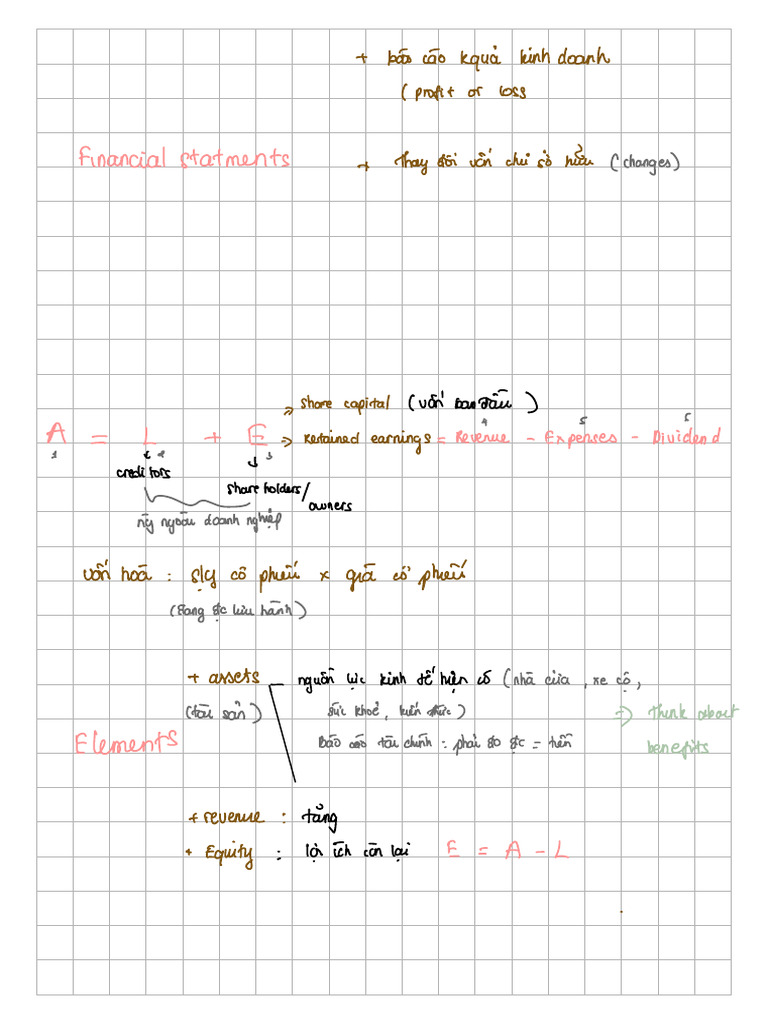 + báo cáo kquả kinh doanh
( profit or loss
Financial statments
+ thay đổi vốn chủ sở hữu (changes)
=> Share capital (vốn ban đầu)
A = L + E => Retained earnings = Revenue - Expenses - Dividend
1 2 3 4 5 5
creditors
share holders/
owners
ngoài doanh nghiệp
vốn hoá : slg cổ phiếu x giá cổ phiếu
(đang đc lưu hành)
+ assets — nguồn lực kinh tế hiện có (nhà cửa, xe cộ,
(tài sản) sức khoẻ, kiến thức) => Think about
Elements Báo cáo tài chính : phải đo đc = tiền benefits
+ revenue : tăng
+ Equity : lợi ích còn lại E = A - L